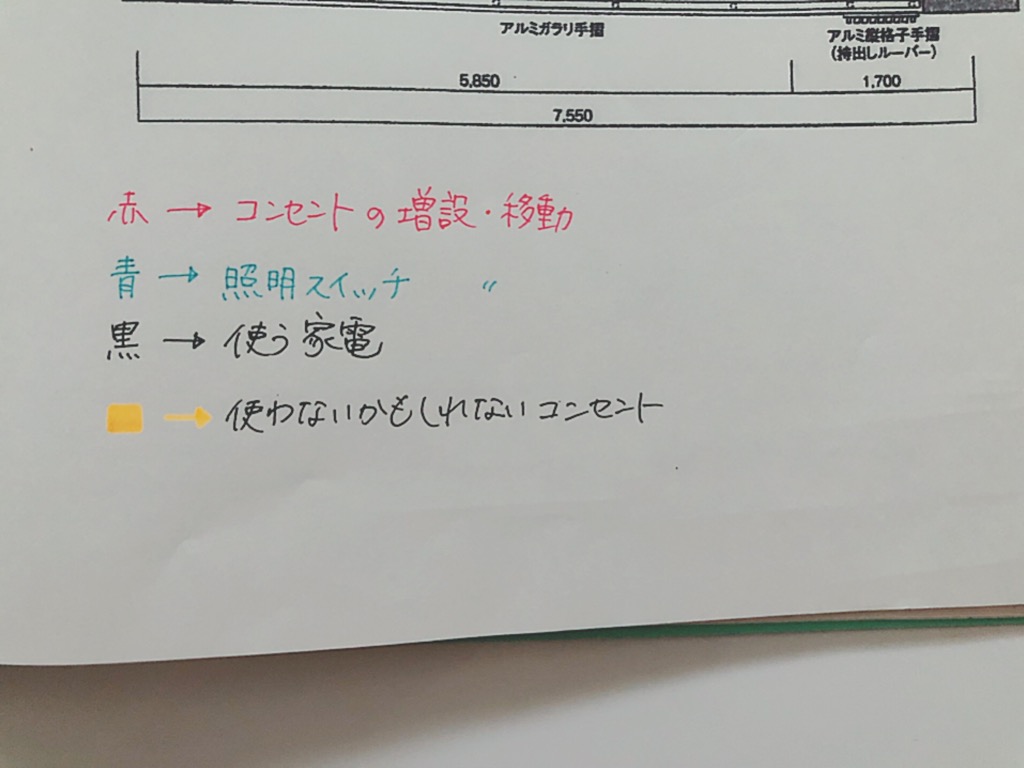 アルミガラリ手摺
アルミ縦格子手摺
(持出しルーバー)
5,850
1,700
7,550
赤 → コンセントの増設・移動
青 → 照明スイッチ 〃
黒 → 使う家電
→ 使わないかもしれないコンセント